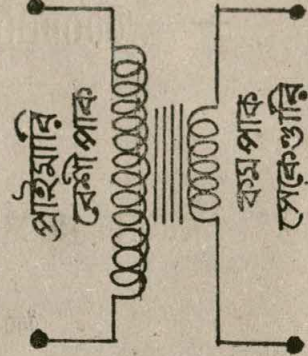 প্রাইমারি
বেশী পাক
কম পাক
সেকেণ্ডারি